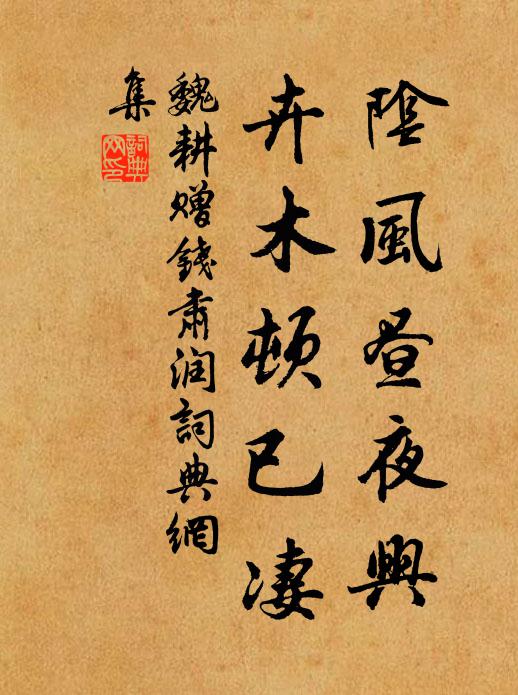 陰風昼夜興
卉木頓已凄
魏耕贈錢肅潤詞典網
集
詞典
网印